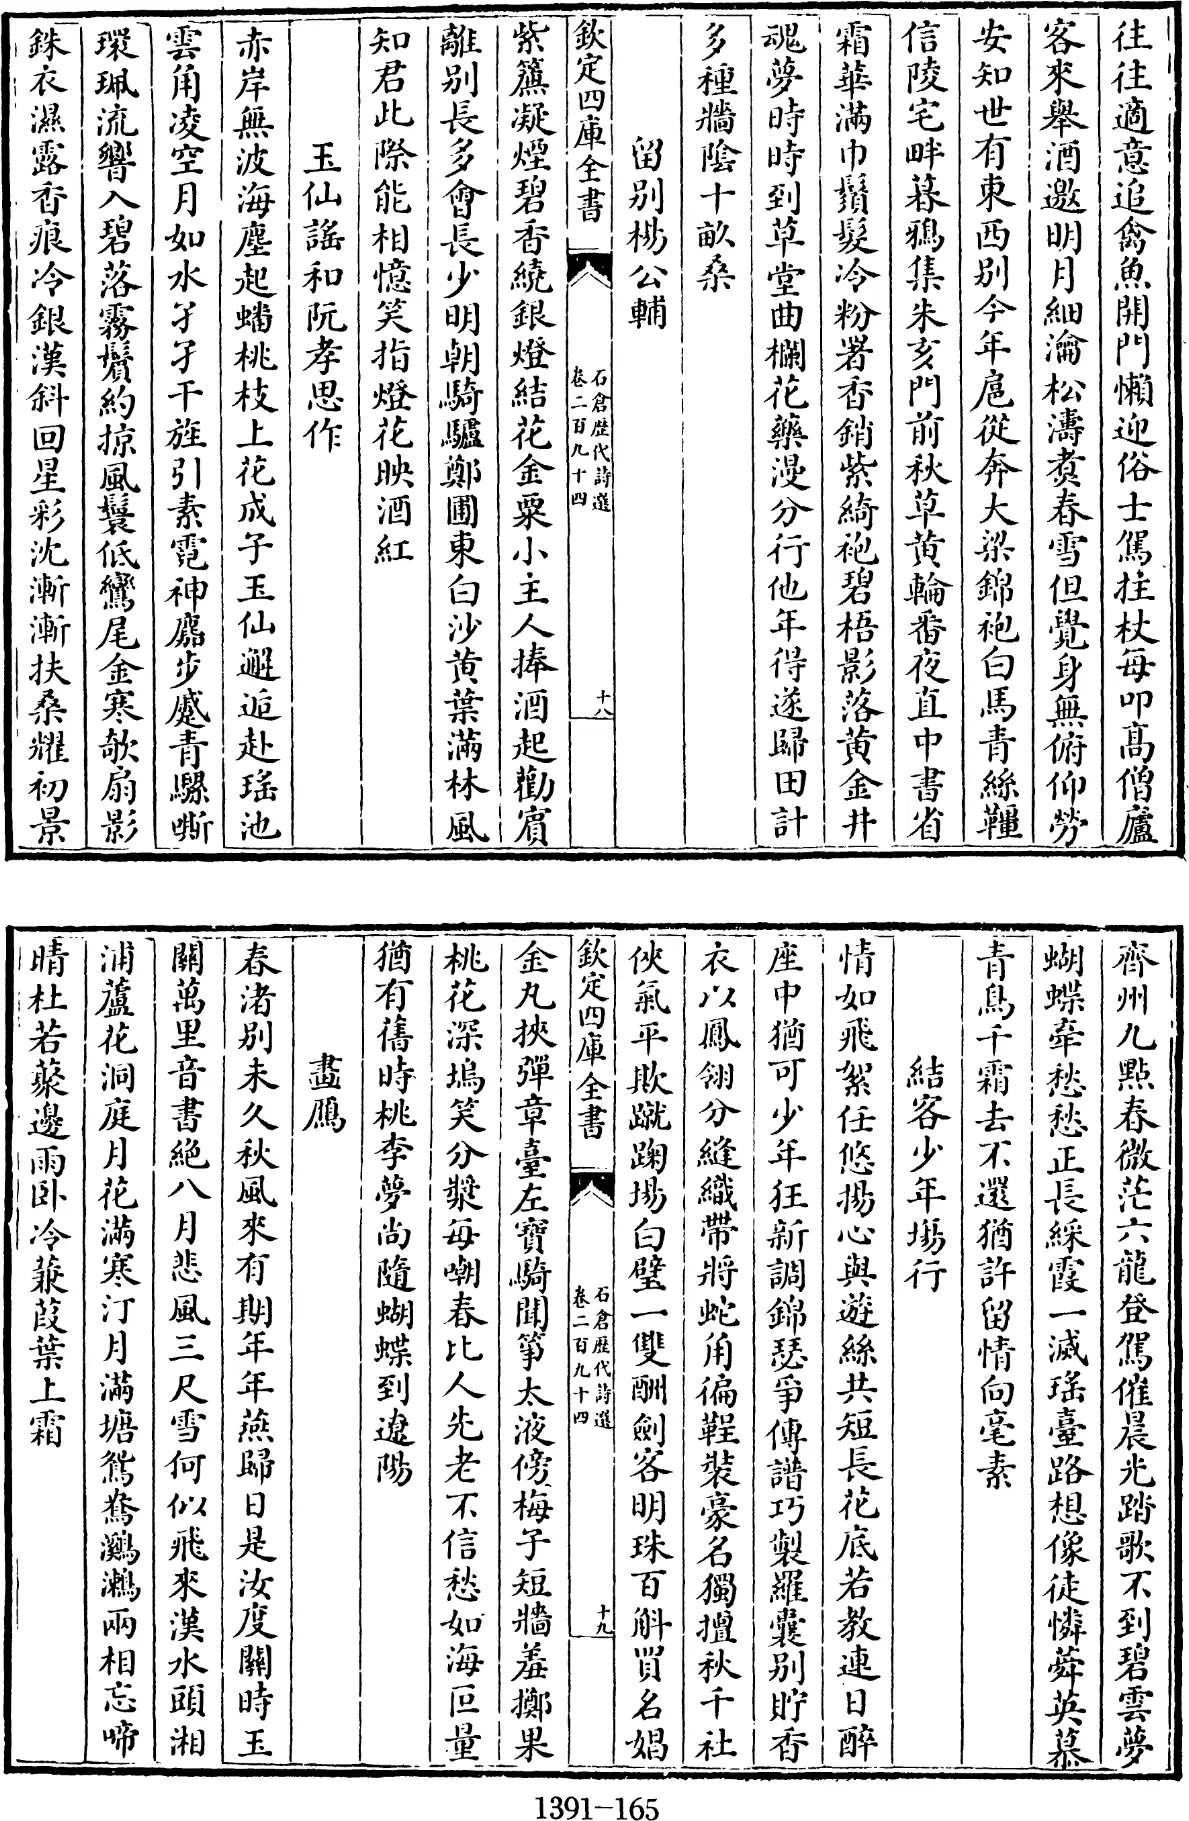 往往適意追禽魚開門懶迎俗士駕拄杖每叩髙僧廬
客來舉酒邀明月細瀹松濤煑春雪但覺身無俯仰勞
安知世有東西别今年扈從奔大梁錦袍白馬青絲韁
信陵宅畔暮鴉集朱亥門前秋草黄輪番夜直中書省
霜華滿巾鬚髮冷粉署香銷紫綺袍碧梧影落黄金井
魂夢時時到草堂曲欄花藥漫分行他年得遂歸田計
多種牆陰十畝桑
留别楊公輔
欽定四庫全書
石倉歴代詩選
卷二百九十四
十八
紫簾凝煙碧香繞銀燈結花金粟小主人捧酒起勸賓
離别長多會長少明朝騎驢鄭圃東白沙黄葉滿林風
知君此際能相憶笑指燈花映酒紅
玉仙謠和阮孝思作
赤岸無波海塵起蟠桃枝上花成子玉仙邂逅赴瑶池
雲角凌空月如水孑孑干旄引素霓神麐步蹙青騾嘶
環珮流響入碧落霧鬢約掠風鬟低鸞尾金寒欹扇影
銖衣濕露香痕冷銀漢斜回星彩沈漸漸扶桑耀初景
齊州九點春微茫六龍登駕催晨光踏歌不到碧雲夢
蝴蝶牽愁愁正長綵霞一滅瑶臺路想像徒憐蕣英暮
青鳥千霜去不還猶許留情向毫素
結客少年塲行
情如飛絮任悠揚心與遊絲共短長花底若教連日醉
座中猶可少年狂新調錦瑟爭傳譜巧製羅囊别貯香
衣以鳳翎分縫織帶將蛇角徧鞓裝豪名獨擅秋千社
俠氣平欺蹴踘塲白璧一雙酬劍客明珠百斛買名娼
欽定四庫全書
石倉歴代詩選
卷二百九十四
十九
金丸挾彈章臺左寶騎聞箏太液傍梅子短牆羞擲果
桃花深塢笑分漿每嘲春比人先老不信愁如海叵量
猶有舊時桃李夢尚隨蝴蝶到遼陽
畫鴈
春渚别未久秋風來有期年年燕歸日是汝度關時玉
關萬里音書絶八月悲風三尺雪何似飛來漢水頭湘
浦蘆花洞庭月花滿寒汀月滿塘鴛鴦鸂鶒兩相忘啼
晴杜若藂邊雨卧冷蒹葭葉上霜
1391-165